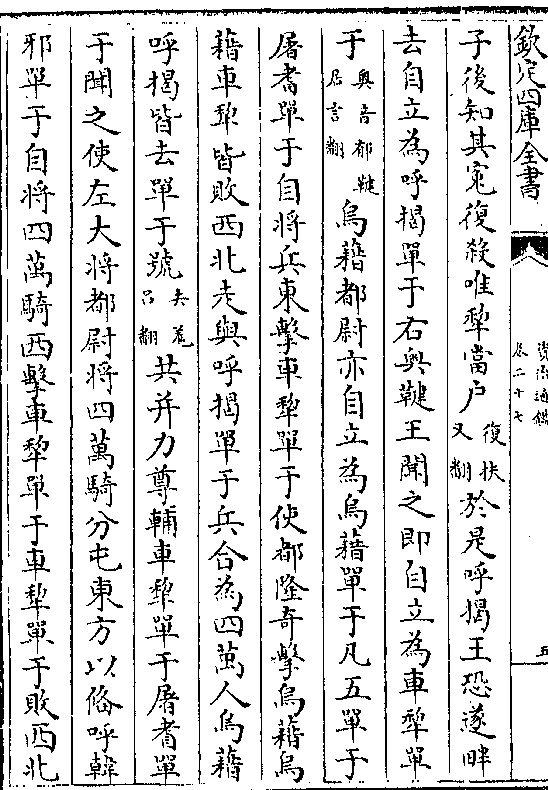 欽定四庫全書
資治通鑑
卷二十七
五
子後知其寃復殺唯犂當户復扶又翻於是呼揭王恐遂畔
去自立為呼揭單于右奥鞬王聞之即自立為車犂單
于奥音郁鞬居言翻烏藉都尉亦自立為烏藉單于凡五單于
屠耆單于自將兵東擊車犂單于使都隆奇擊烏藉烏
藉車犂皆敗西北走與呼揭單于兵合為四萬人烏藉
呼揭皆去單于號去羌吕翻共并力尊輔車犂單于屠耆單
于聞之使左大將都尉將四萬騎分屯東方以備呼韓
邪單于自將四萬騎西擊車犂單于車犂單于敗西北